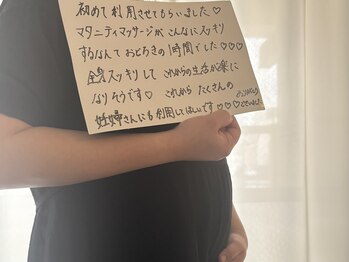 初めて利用させてもらいました♡
マタニティマッサージがこんなにスッキリ
するなんておどろきの1時間でした♡♡♡
全身スッキリして これからの生活が楽に
なりそうです♡ これから たくさんの
妊婦さんにも利用してほしいです♡♡♡